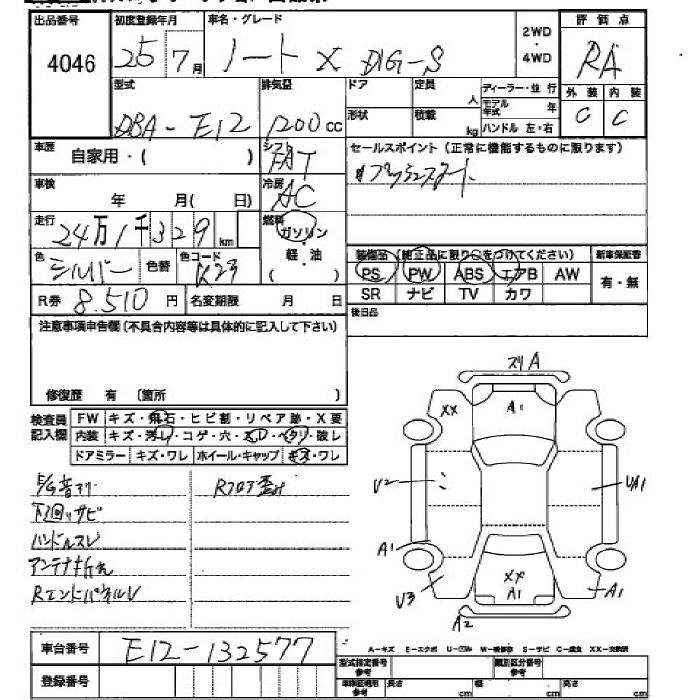 出品番号 初度登録年月 車名・グレード 2WD・4WD 評価点
4046 25 7月 ノート X DIG-S RA
型式 排気量 ドア 定員 人 ディーラー・並行 外装 内装
DBA-E12 1200cc 形状 積載 kg モデル年式 年 ハンドル 左・右 C C
車歴 自家用・( ) シフト FAT セールスポイント (正常に機能するものに限ります)
車検 年 月(日) 冷房 AC プッシュスタート
走行 24万1千329km 燃料 ガソリン・軽・油 ( )
色 シルバー 色替 色コード K23 装備品 (純正品に限り○をつけてください) 新車保証書
PS PW ABS エアB AW 有・無
R券 8.510円 名変期限 月 日 SR ナビ TV カワ
注意事項申告欄 (不具合内容等は具体的に記入して下さい) 後日品
修復歴 有 〔箇所 〕
検査員記入欄 FW キズ・飛石・ヒビ割・リペア跡・X要
内装 キズ・汚レ・コゲ・穴・スレ・ヘタリ・破レ
ドアミラー キズ・ワレ ホイール・キャップ キズ・ワレ
E/G音アリ Rフロア歪み
下廻リサビ
ハンドルスレ
アンテナ折れ
RエンドパネルU
スリA
XX A1
U2 UA1
A1
XX A1
U3 A1
A2
車台番号 E12-132577
登録番号
A-キズ E-エクボ S-サビ C-腐食 XX-交換済
型式指定番号 参考 類別区分番号 参考
車検証明 参考 長さ cm 幅 cm 高さ cm